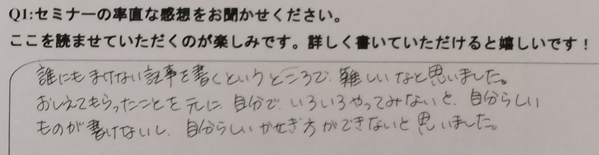 Q1:セミナーの率直な感想をお聞かせください。
ここを読ませていただくのが楽しみです。詳しく書いていただけると嬉しいです！
誰にもまけない記事を書くというところで、難しいなと思いました。
おしえてもらったことを元に、自分でいろいろやってみないと、自分らしい
ものが書けないし、自分らしいかせぎ方ができないと思いました。